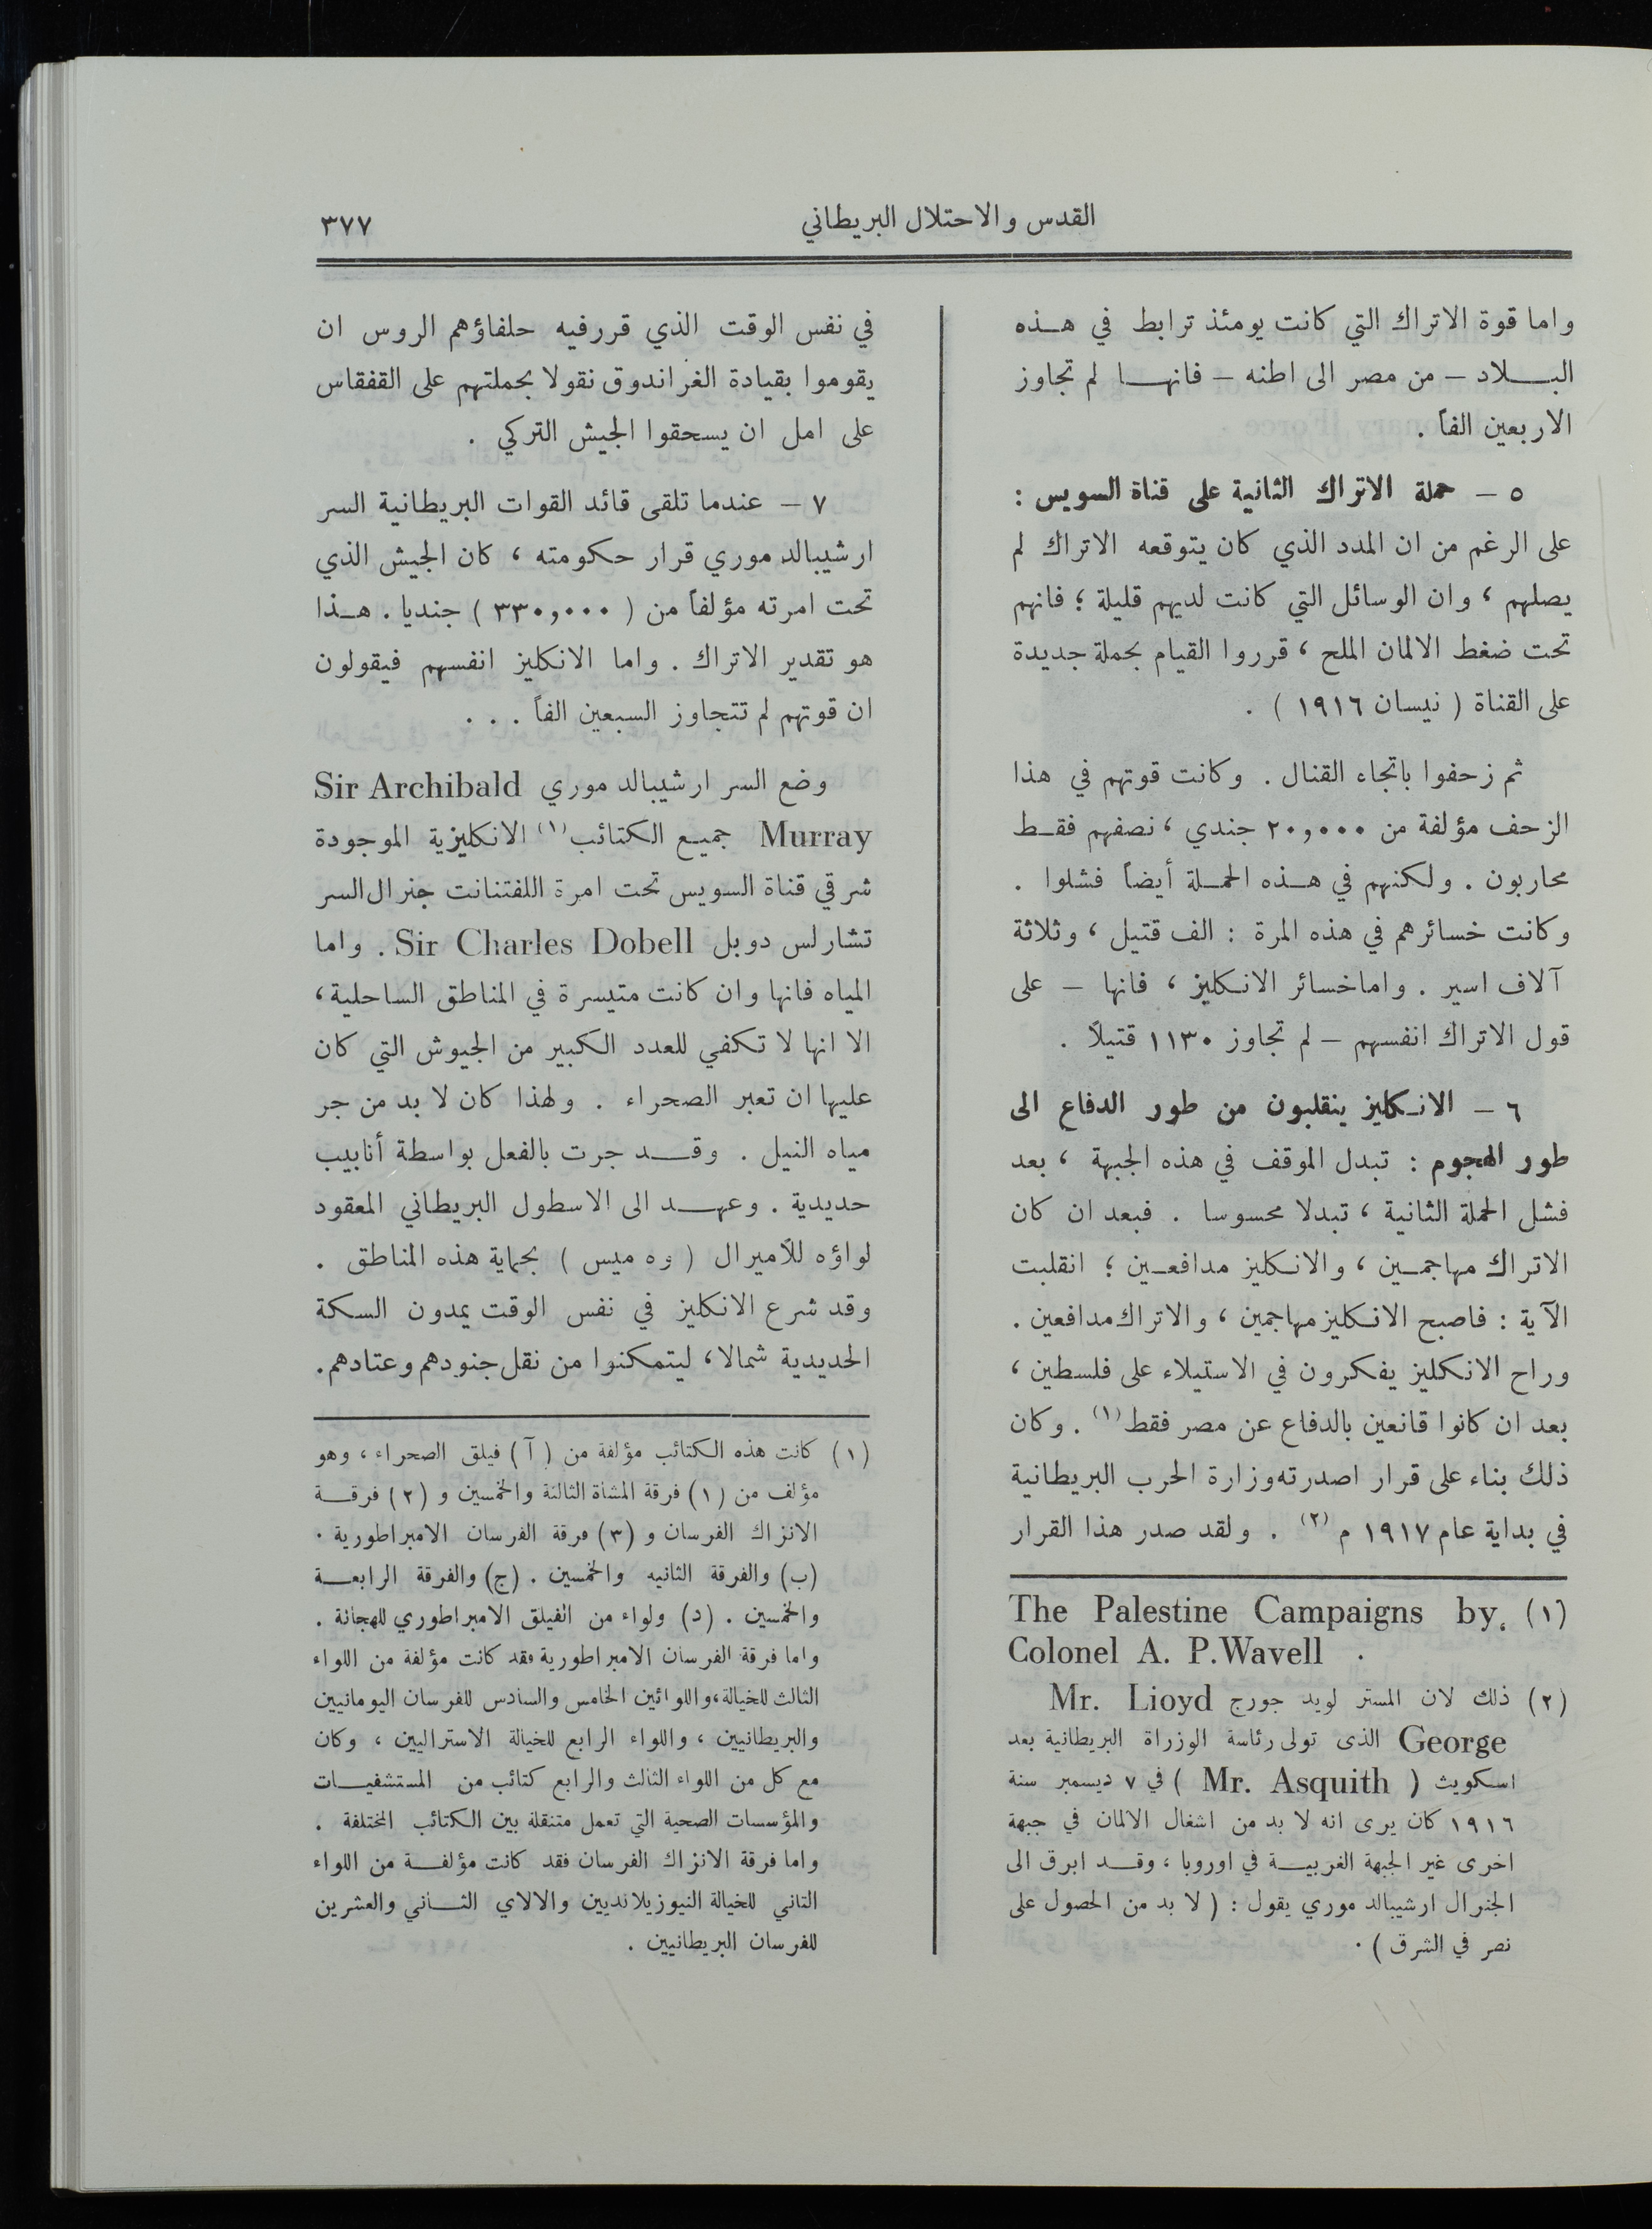 القدس والاحتلال البريطاني
٣٧٧
واما قوة الاتراك التي كانت يومئذ ترابط في هـذه
البــلاد – من مصر الى اطنه – فانهـا لم تجاوز
الاربعين الفاً .
٥ – حملة الاتراك الثانية على قناة السويس :
على الرغم من ان المدد الذي كان يتوقعه الاتراك لم
يصلهم ، وان الوسائل التي كانت لديهم قليلة ؛ فانهم
تحت ضغط الالمان الملح ، قرروا القيام بحملة جديدة
على القناة ( نيسان ١٩١٦ ) .
ثم زحفوا باتجاء القنال . وكانت قوتهم في هذا
الزحف مؤلفة من ٢٠,٠٠٠ جندي ، نصفهم فقـط
محاربون . ولكنهم في هـذه الحمـلة أيضاً فشلوا .
وكانت خسائرهم في هذه المرة : الف قتيل ، وثلاثة
آلاف اسير . واماخسائر الانـكليز ، فانها – على
قول الاتراك انفسهم – لم تجاوز ١١٣٠ قتيلاً .
٦ – الانـكليز ينقلبون من طور الدفاع الى
طور الهجوم : تبدل الموقف في هذه الجبهة ، بعد
فشل الحملة الثانية ، تبدلا محسوسا . فبعد ان كان
الاتراك مهاجمـين ، والانـكليز مدافعـين ؛ انقلبت
الآية : فاصبح الانـكليز مهاجمين ، والاتراك مدافعين .
وراح الانكليز يفكرون في الاستيلاء على فلسطين ،
بعد ان كانوا قانعين بالدفاع عن مصر فقط (١) . وكان
ذلك بناء على قرار اصدرته وزارة الحرب البريطانية
في بداية عام ١٩١٧ م (٢) . ولقد صدر هذا القرار
(١) The Palestine Campaigns by
Colonel A. P.Wavell .
(٢) ذلك لان المستر لويد جورج Mr. Lioyd
George الذى تولى رئاسة الوزراة البريطانية بعد
اسكويث ( Mr. Asquith ) في ٧ ديسمبر سنة
١٩١٦ كان يرى انه لا بد من اشغال الالمان في جبهة
اخرى غير الجبهة الغربيـة في اوروبا ، وقـد ابرق الى
الجنرال ارشيبالد موري يقول : ( لا بد من الحصول على
نصر في الشرق ) .
في نفس الوقت الذي قررفيه حلفاؤهم الروس ان
يقوموا بقيادة الغراندوق نقولا بحملتهم على القفقاس
على امل ان يسحقوا الجيش التركي .
٧ – عندما تلقى قائد القوات البريطانية السر
ارشيبالد موري قرار حكومته ، كان الجيش الذي
تحت امرته مؤلفاً من ( ٣٣٠,٠٠٠ ) جنديا . هـذا
هو تقدير الاتراك . واما الانكليز انفسهم فيقولون
ان قوتهم لم تتجاوز السبعين الفاً . . .
وضع السر ارشيبالد موري Sir Archibald
Murray جميع الكتائب (١) الانكليزية الموجودة
شرقي قناة السويس تحت امرة اللفتنانت جنرال السر
تشارلس دوبل Sir Charles Dobell . واما
المياه فانها وان كانت متيسرة في المناطق الساحلية ،
الا انها لا تكفي للعدد الكبير من الجيوش التي كان
عليها ان تعبر الصحراء . ولهذا كان لا بد من جر
مياه النيل . وقـد جرت بالفعل بواسطة أنابيب
حديدية . وعهـد الى الاسطول البريطاني المعقود
لواؤه للأميرال ( وه ميس ) بحماية هذه المناطق .
وقد شرع الانكليز في نفس الوقت يمدون السكة
الحديدية شمالا ، ليتمكنوا من نقل جنودهم وعتادهم .
(١) كانت هذه الكتائب مؤلفة من ( آ ) فيلق الصحراء ، وهو
مؤلف من (١) فرقة المشاة الثالثة والخمسين و (٢) فرقـة
الانزاك الفرسان و (٣) فرقة الفرسان الامبراطورية .
(ب) والفرقة الثانيه والخمسين . (ج) والفرقة الرابعـة
والخمسين . (د) ولواء من الفيلق الامبراطوري للهجانة .
واما فرقة الفرسان الامبراطورية فقد كانت مؤلفة من اللواء
الثالث للخيالة ، واللوائين الخامس والسادس للفرسان اليومانيين
والبريطانيين ، واللواء الرابع للخيالة الاستراليين ، وكان
مع كل من اللواء الثالث والرابع كتائب من المستشفيـات
والمؤسسات الصحية التي تعمل متنقلة بين الكتائب المختلفة .
واما فرقة الانزاك الفرسان فقد كانت مؤلفـة من اللواء
الثاني للخيالة النيوزيلانديين والالاي الثـاني والعشرين
للفرسان البريطانيين .